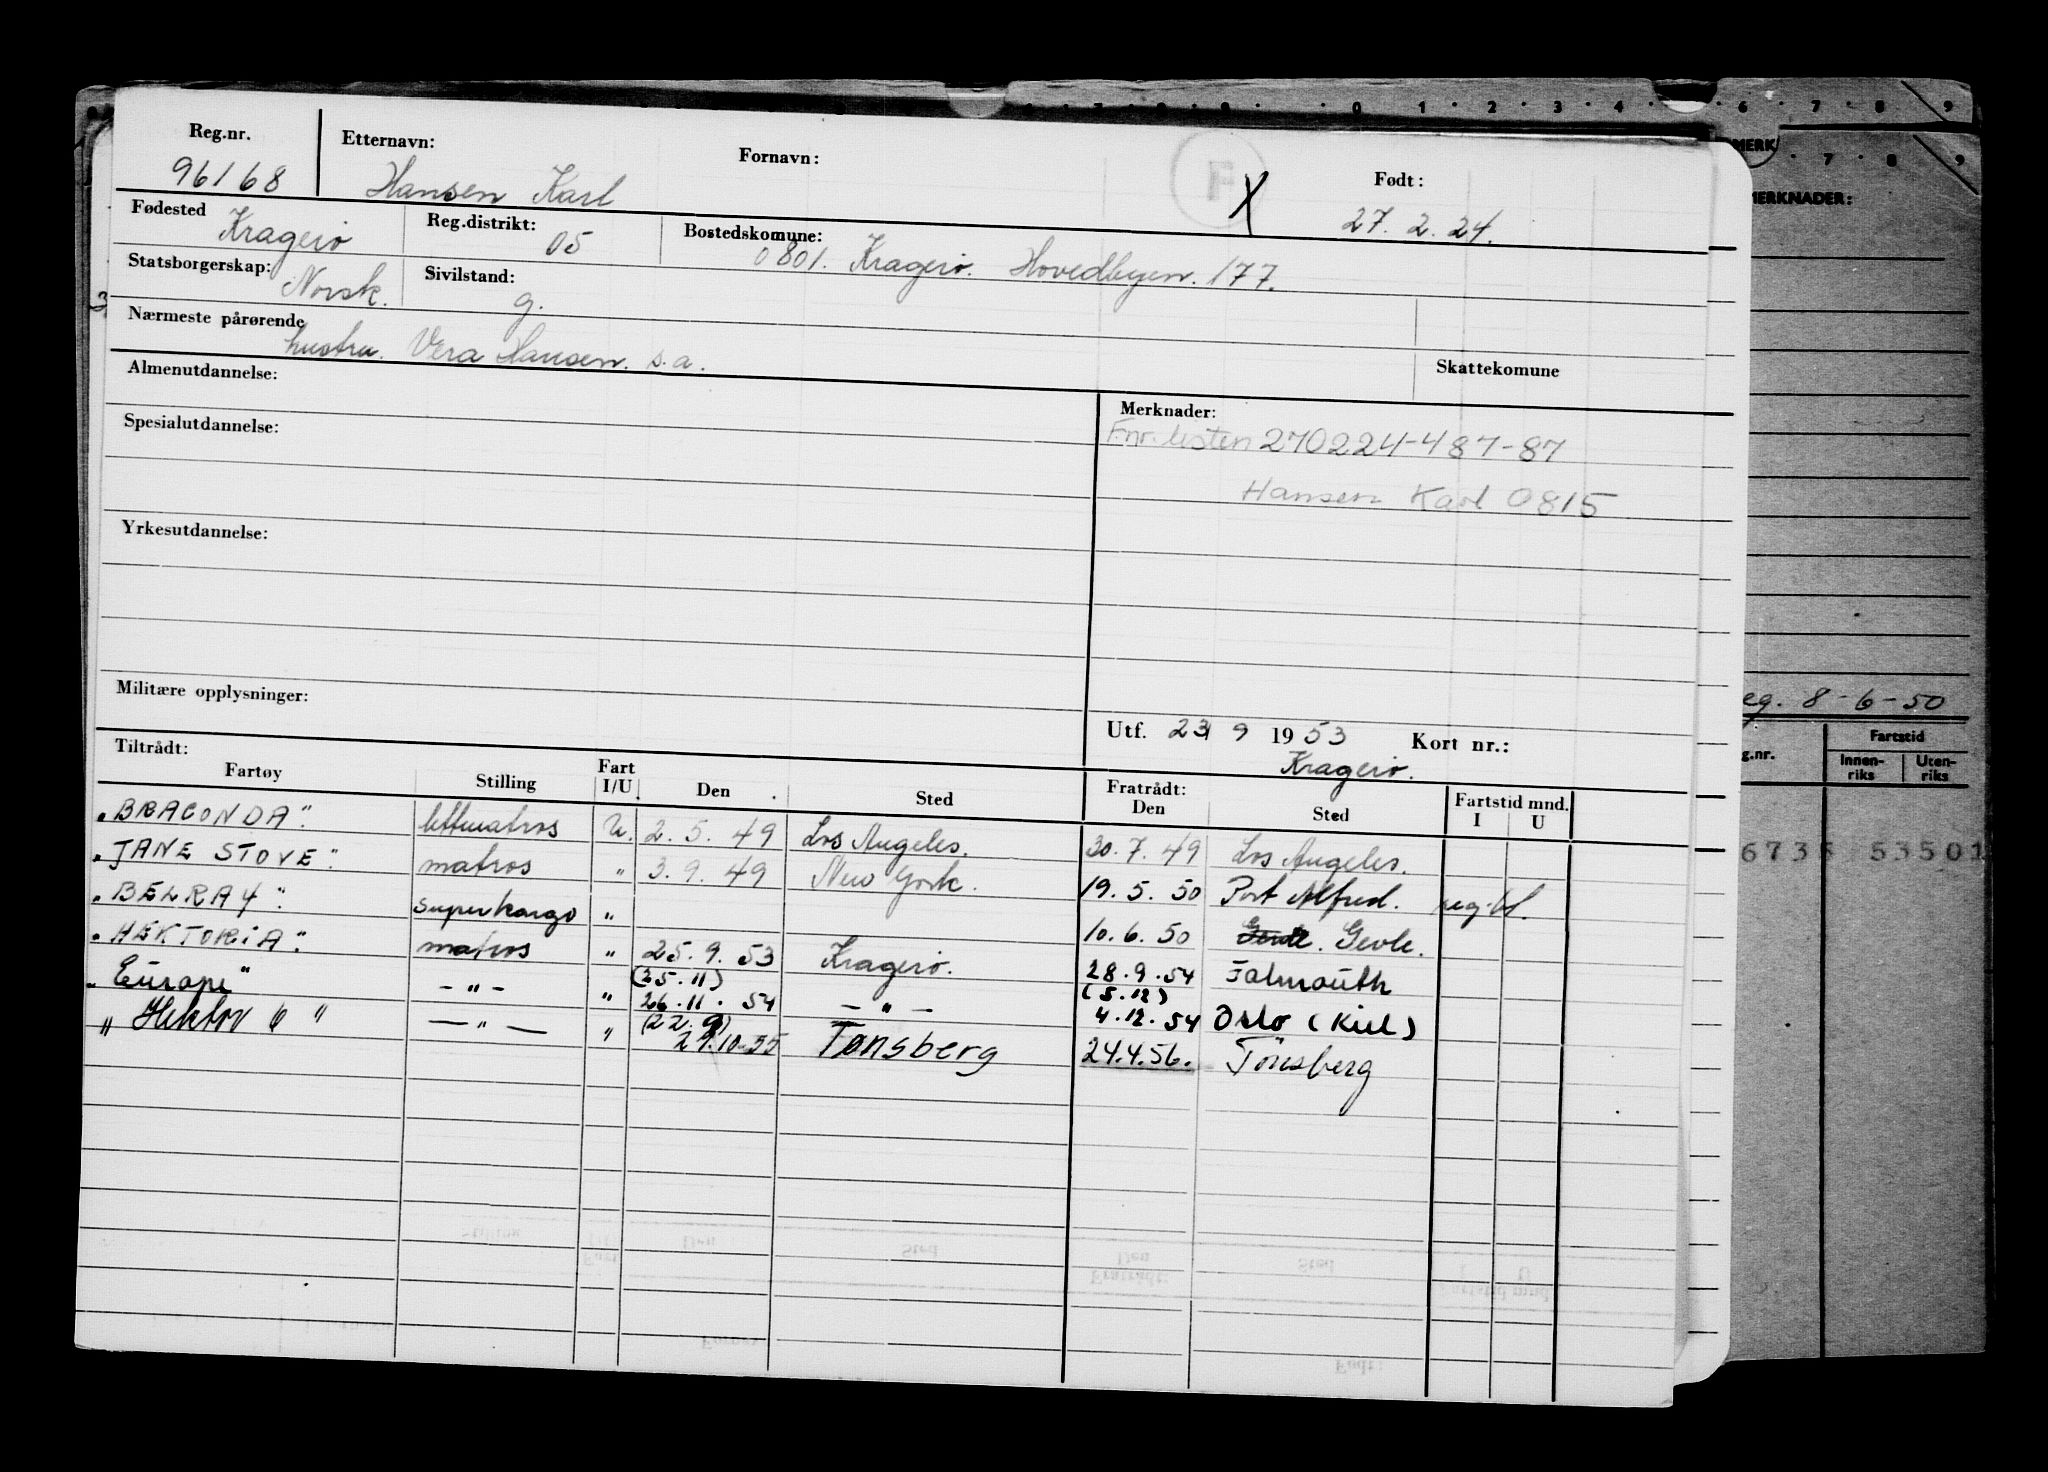 Reg.nr. Etternavn: Fornavn: F X Født:
96168 Hansen Karl 27.2.24.
Fødested Kragerø Reg.distrikt: 05 Bostedskomune: 0801. Kragerø. Hovedbyen. 177.
Statsborgerskap: Norsk. Sivilstand: g.
Nærmeste pårørende hustru. Vera Hansen. s.a.
Almenutdannelse: Skattekomune
Merknader:
Spesialutdannelse: F.nr.listen 270224-487-87
Hansen Karl 0815
Yrkesutdannelse:
Militære opplysninger:
Utf. 23 9 1953 Kort nr.:
Kragerø.
Tiltrådt: Fratrådt:
Fartøy Stilling Fart I/U Den Sted Den Sted Fartstid mnd. I U
"BRAGONDA" lettmatros U. 2.5.49 Los Angeles. 30.7.49 Los Angeles.
"JANE STOVE" matros " 3.9.49 New York. 19.5.50 Port Alfred.
"BELRAY" superkargo " 10.6.50 Gevle.
"HEKTORIA" matros " 25.9.53 Kragerø. 28.9.54 Falmouth
"Europe" - " - " (25.11) 26.11.54 - " - (5.12) 4.12.54 Oslo (Kiel)
"Hektor 6" - " - " (22.9) 29.10-55 Tønsberg 24.4.56. Tönsberg
MERK
MERKNADER:
eg. 8-6-50
g.nr. Fartstid
Innen-riks Uten-riks
53501